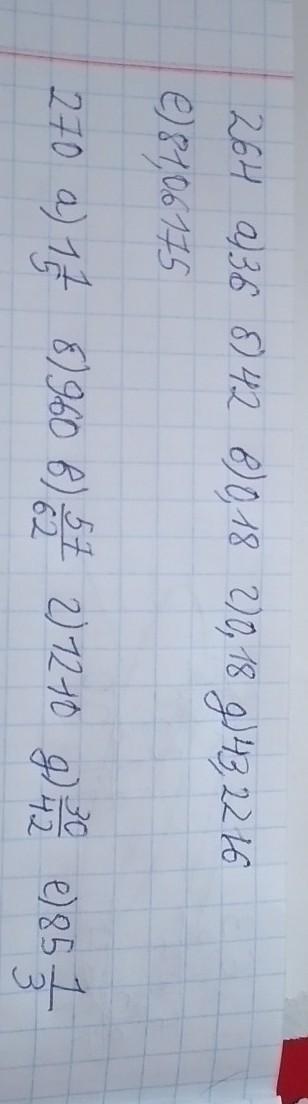 264 а)36 б)42 в)0,18 г)0,18 д)43,2216
е)81,06175
270 а) 1 1/5 б)960 в) 57/62 г)1210 д) 30/42 е)85 1/3